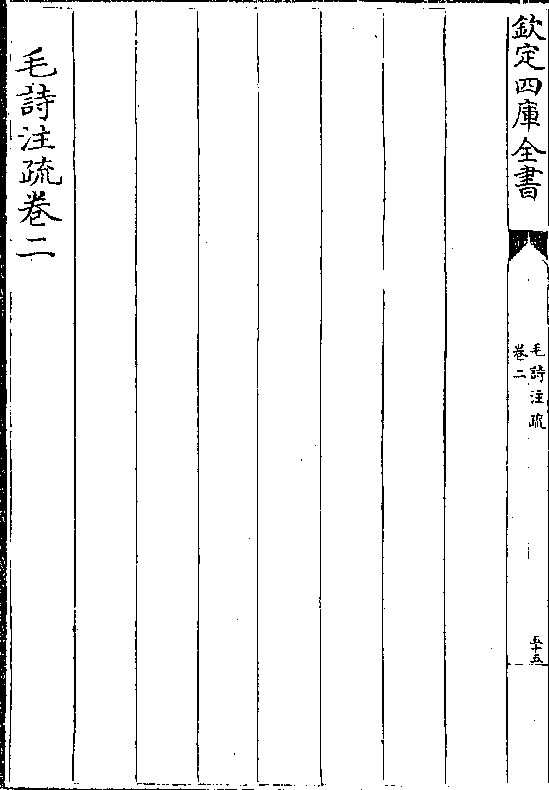 欽定四庫全書
毛詩注疏
卷二
五十五
毛詩注疏卷二